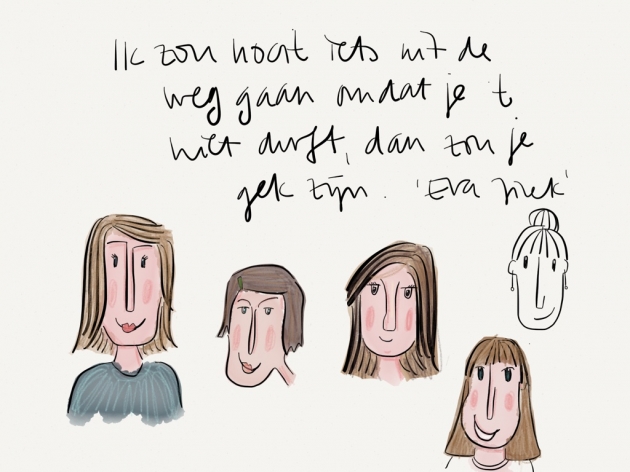 Ik zou nooit iets uit de
weg gaan omdat je 't
niet durft, dan zou je
gek zijn. 'Eva Jinek'